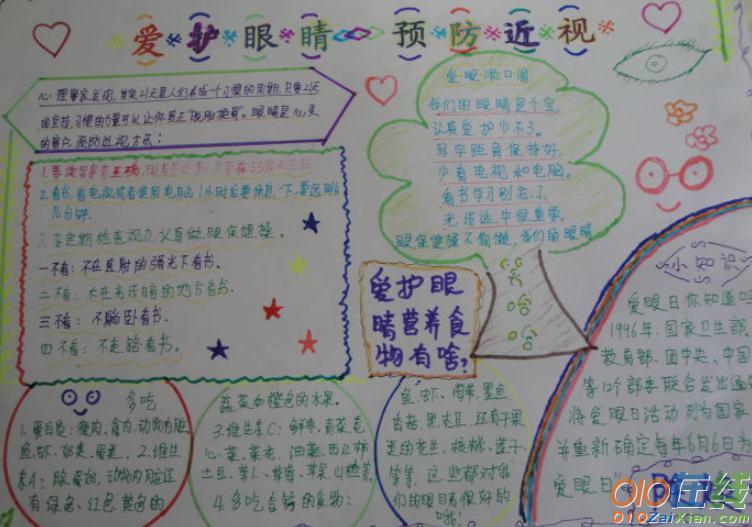 爱护眼睛 预防近视
心理学家发现,其实21天是人们养成一个习惯的周期,只要21天
的坚持,习惯的力量可以让你真正"脱胎换骨"。眼睛是心灵
的窗户,预防近视方法:
1.要读写姿势正确,
2.看书、看电视或者使用电脑1小时后要休息一下,要远眺
几分钟。
3.要定期检查视力,认真做眼保健操。
一不看:不在直射的强光下看书。
二不看:不在光线暗的地方看书。
三不看:不躺卧看书。
四不看:不走路看书。
爱眼顺口溜
我们的眼睛是个宝,
认真爱护少不了。
写字距离保持好,
少看电视和电脑。
看书学习别忘了,
光线适中很重要。
眼保健操不偷懒,我们的眼睛
爱护眼
睛营养食
物有啥?
小知识
爱眼日你知道
1996年,国家卫生部
教育部、团中央、中国
等12个部委联合发出通
将爱眼日活动列为国家
并重新确定每年6月6日为
爱眼日
多吃
1.蛋白质:瘦肉、禽肉、动物内脏、
鱼、虾、奶类、蛋类、2.维生
素A:
有绿色、红色、黄色的
蔬菜如橙色的水果。
3.维生素C:鲜枣、
心菜、菜花、油菜、西红柿
土豆、萝卜、草莓、苹果、山楂等
4.多吃含钙的食物:
鱼、虾、海带、墨鱼
香菇、黑木耳,还有干果
类的花生、核桃、莲子
等等,这些都对我
们的眼睛有很好的
哦!
010在线
010ZaiXian.com